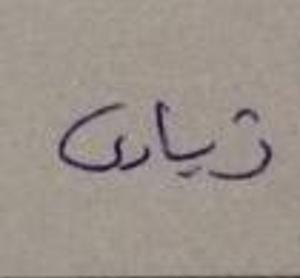 زیادی